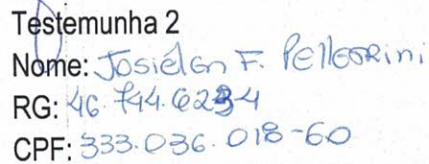 Testemunha 2
Nome: Josiélen F. Pellegrini
RG: 46.744.623-4
CPF: 333.036.018-60